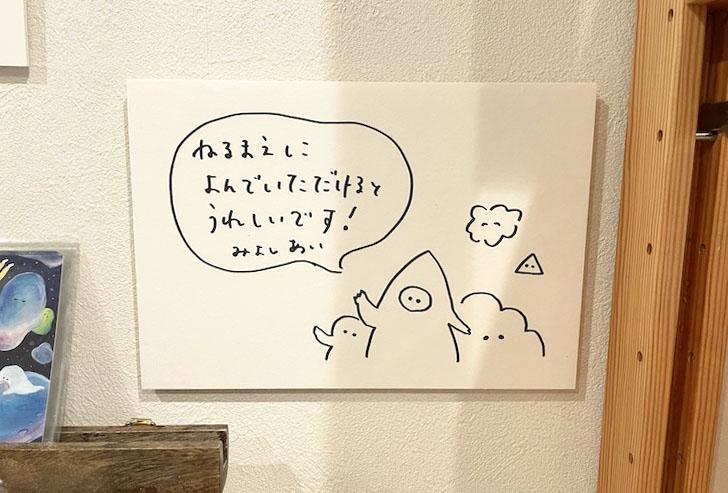 ねるまえに
よんでいただけると
うれしいです!
みよし あい